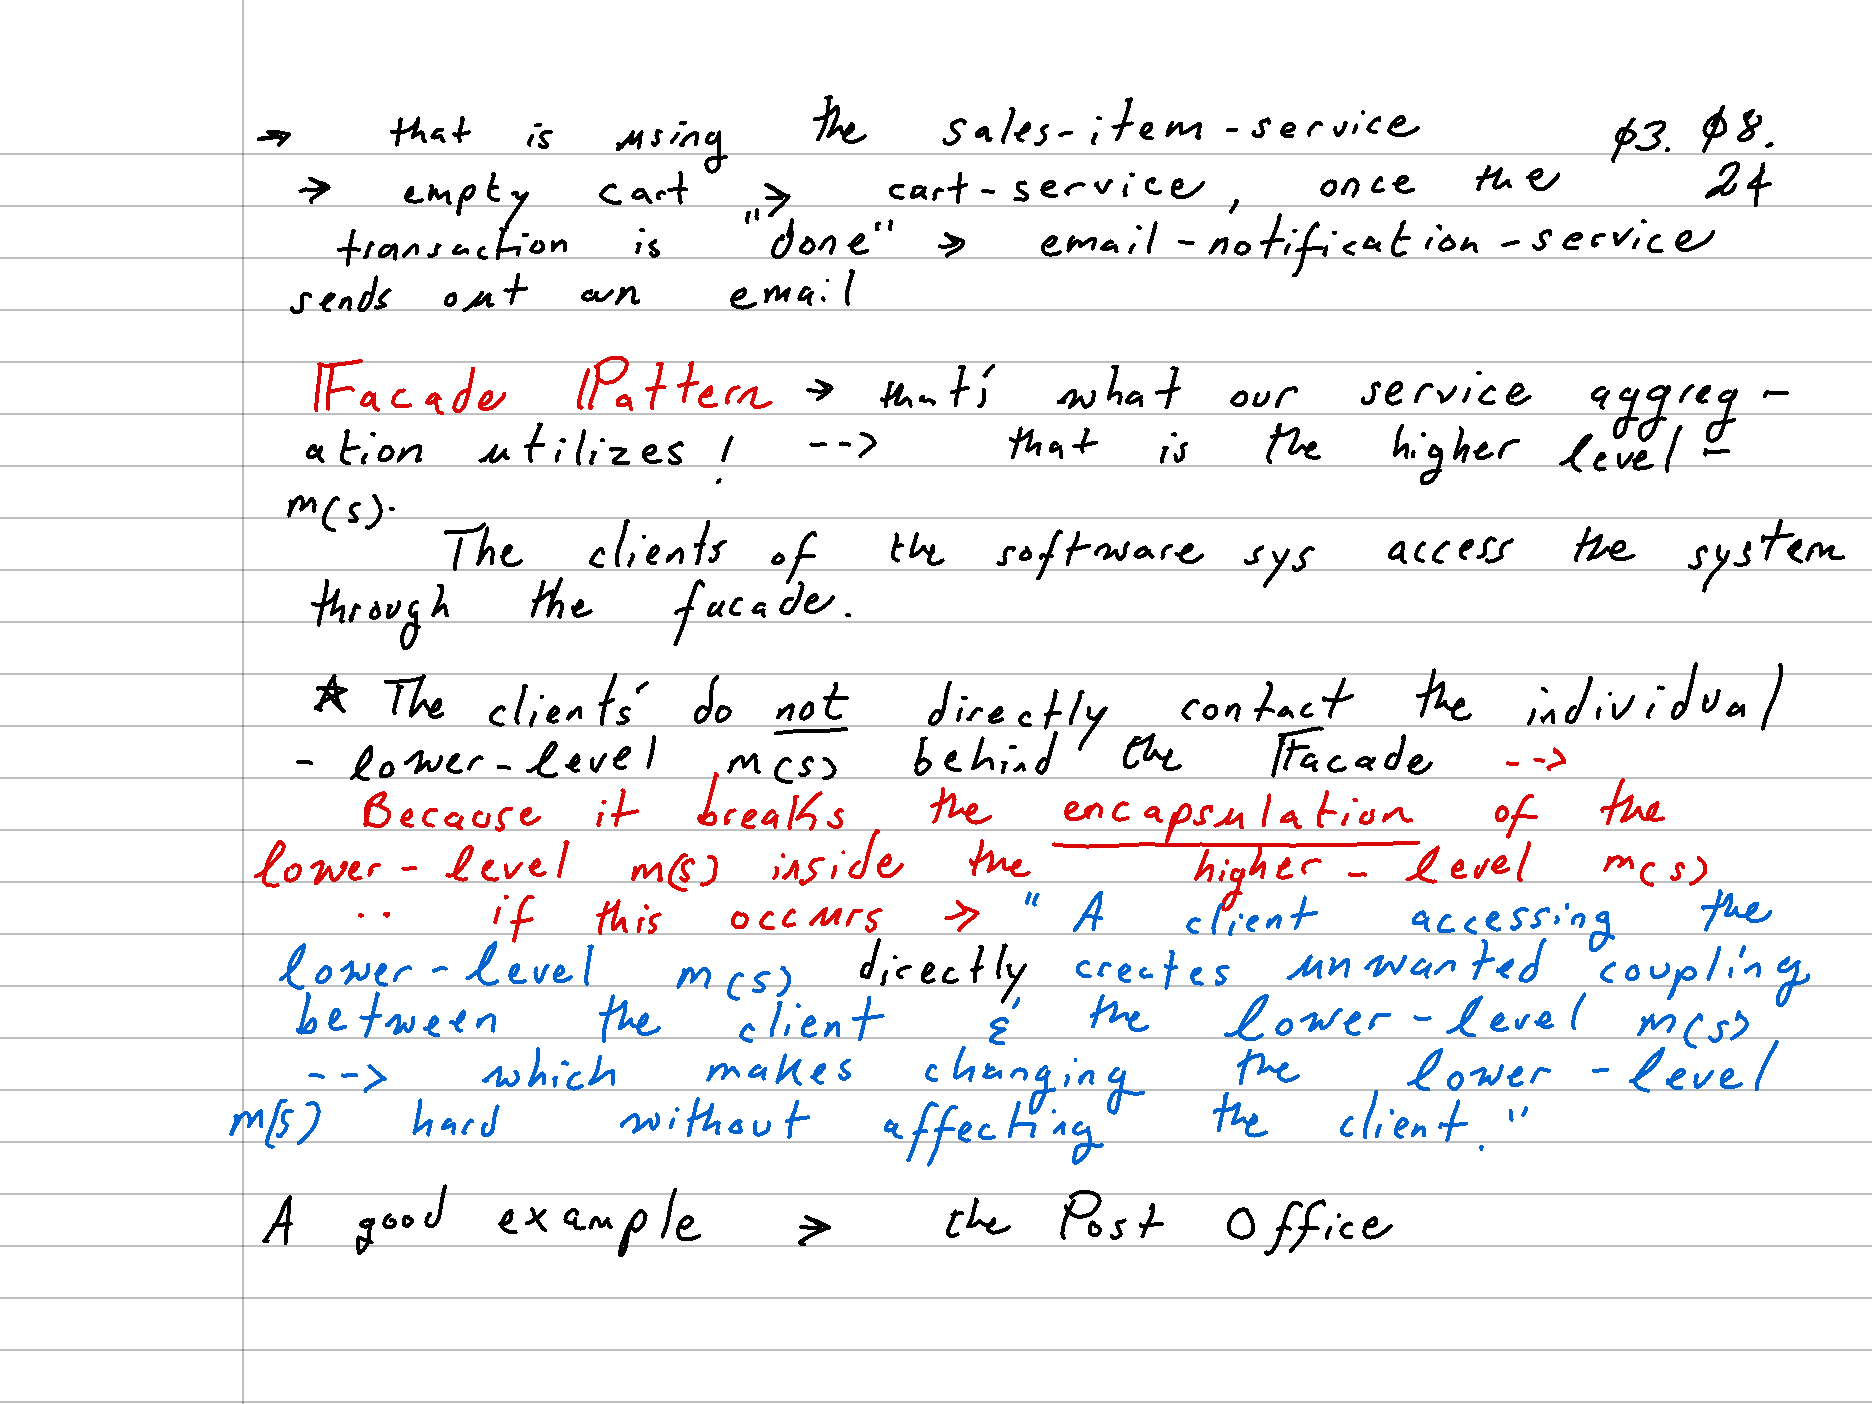 → that is using the sales-item-service ø3. ø8.
→ empty cart → cart-service, once the 24
transaction is "done" → email-notification-service
sends out an email
Facade Pattern → that's what our service aggreg-
ation utilizes! --> that is the higher level-
m(s).
The clients of the software sys access the system
through the facade.
★ The clients' do not directly contact the individual
- lower-level m(s) behind the Facade -->
Because it breaks the encapsulation of the
lower-level m(s) inside the higher-level m(s)
.. if this occurs → "A client accessing the
lower-level m(s) directly creates unwanted coupling
between the client & the lower-level m(s)
--> which makes changing the lower-level
m(s) hard without affecting the client."
A good example → the Post Office